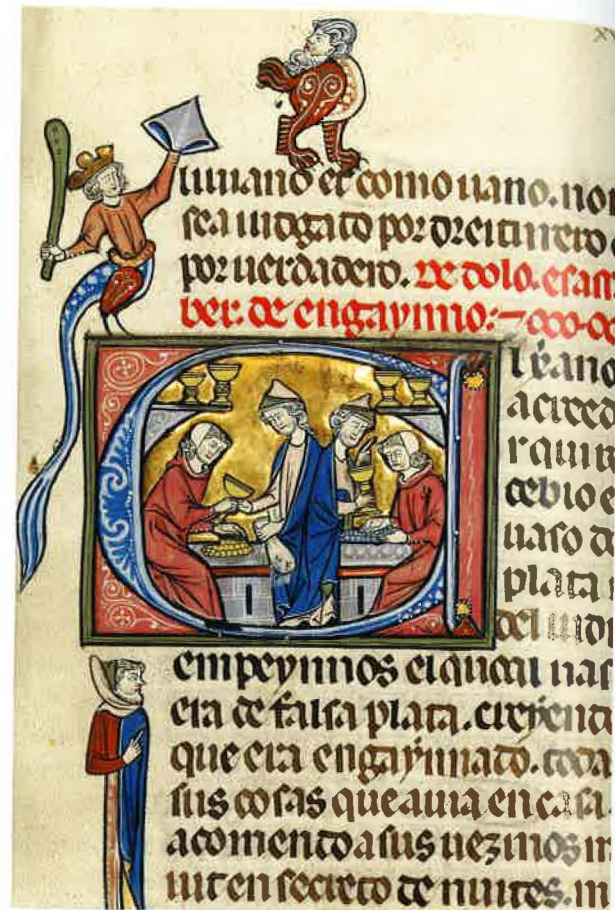 liuiano et como uano. non
sea iudgado por dreiturero
por uerdadero. De dolo. es a
ber: de engaynno:-
acreed
r qui re
cebio e
uaso de
plata
del iudi
empeynnos el quoal uas
era de falsa plata. creyend
que era engaynnado. toda
sus cosas que auia en casa
acomendo a sus uezinos m
uit en secreto de nuites. m